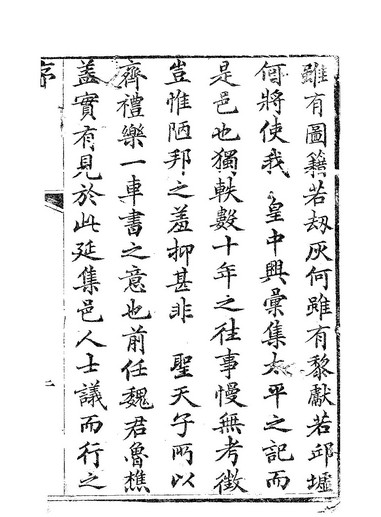 雖有圖籍若刧灰何雖有黎獻若邱墟
何將使我 皇中興彙集太平之記而
是邑也獨軼數十年之往事慢無考徵
豈惟陋邦之羞抑甚非 聖天子所以
齊禮樂一車書之意也前任魏君魯樵
盖實有見於此延集邑人士議而行之
序
二